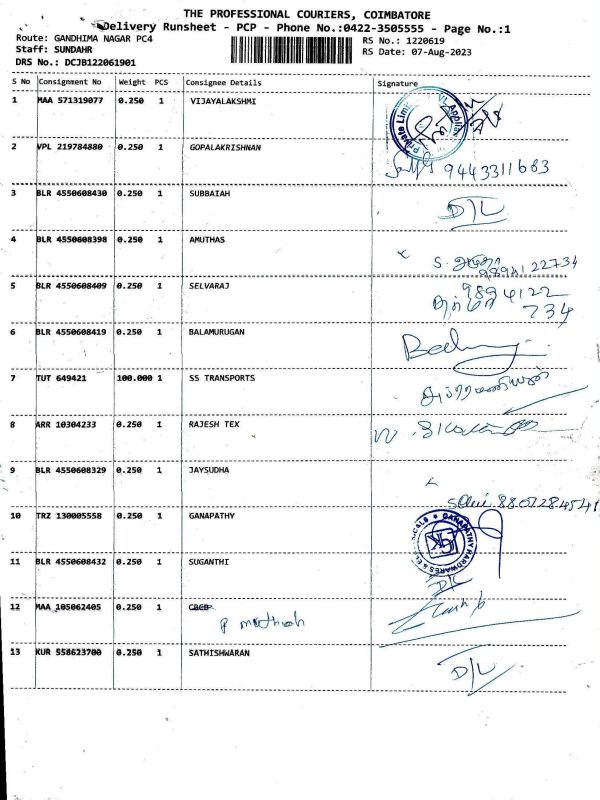 THE PROFESSIONAL COURIERS, COIMBATORE
Delivery Runsheet - PCP - Phone No.:0422-3505555 - Page No.:1
Route: GANDHIMA NAGAR PC4
RS No.: 1220619
Staff: SUNDAHR
RS Date: 07-Aug-2023
DRS No.: DCJB122061901
S No Consignment No Weight PCS Consignee Details Signature
1 MAA 571319077 0.250 1 VIJAYALAKSHMI
Private Limi
2 VPL 219784880 0.250 1 GOPALAKRISHNAN
9443311683
3 BLR 4550608430 0.250 1 SUBBAIAH D/L
4 BLR 4550608398 0.250 1 AMUTHAS
S. அமுதா
9894122734
5 BLR 4550608409 0.250 1 SELVARAJ 9894122
734
6 BLR 4550608419 0.250 1 BALAMURUGAN
7 TUT 649421 100.000 1 SS TRANSPORTS
8 ARR 10304233 0.250 1 RAJESH TEX
9 BLR 4550608329 0.250 1 JAYSUDHA
8807284541
10 TRZ 130005558 0.250 1 GANAPATHY
GANAPATHY HARDWARES & ELECTRICALS
GK
11 BLR 4550608432 0.250 1 SUGANTHI D/L
12 MAA 105062405 0.250 1 CBCD
13 KUR 558623700 0.250 1 SATHISHWARAN D/L